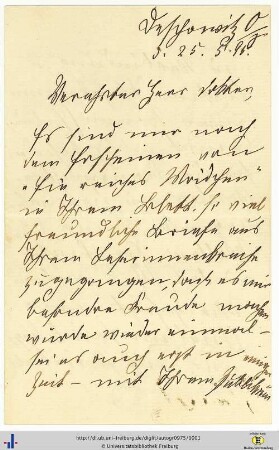 Deschowitz O/
d. 25. 5. 96.
Verehrter Herr Doktor,
Es sind mir nach
dem Erscheinen von
"Ein reiches Mädchen"
in Ihrem Blatt so viel
freundliche Briefe aus
Ihrem Leserinnenkreise
zugegangen, daß es mir
besondre Freude machen
würde wieder einmal –
sei es auch erst in
Zeit – mit Ihrem
http://dl.ub.uni-freiburg.de/diglit/autogr0975/0001
© Universitätsbibliothek Freiburg